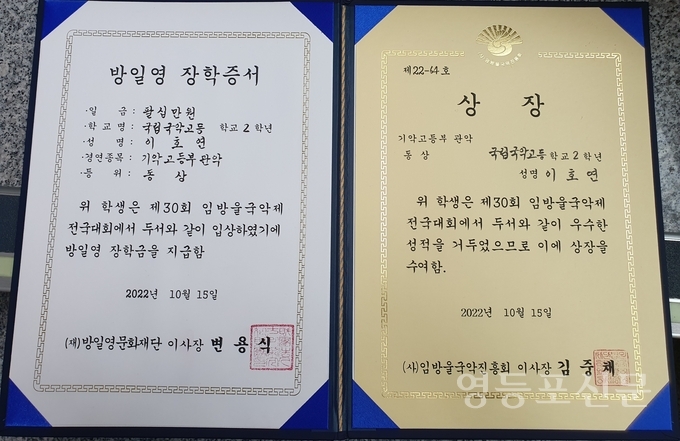 방일영 장학증서
·일 금 : 팔십만원
·학 교 명 : 국립국악고등 학교 2 학년
·성 명 : 이 호 연
·경연종목 : 기악고등부 관악
·등 위 : 동 상
위 학생은 제30회 임방울국악제
전국대회에서 두서와 같이 입상하였기에
방일영 장학금을 지급함
2022년 10월 15일
(재)방일영문화재단 이사장 변 용 식
제22-64호
상 장
기악고등부 관악
동 상 국립국악고등학교 2 학년
성명 이 호 연
위 학생은 제30회 임방울국악제
전국대회에서 두서와 같이 우수한
성적을 거두었으므로 이에 상장을
수여함.
2022년 10월 15일
(사)임방울국악진흥회 이사장 김 중 채
영등포신문